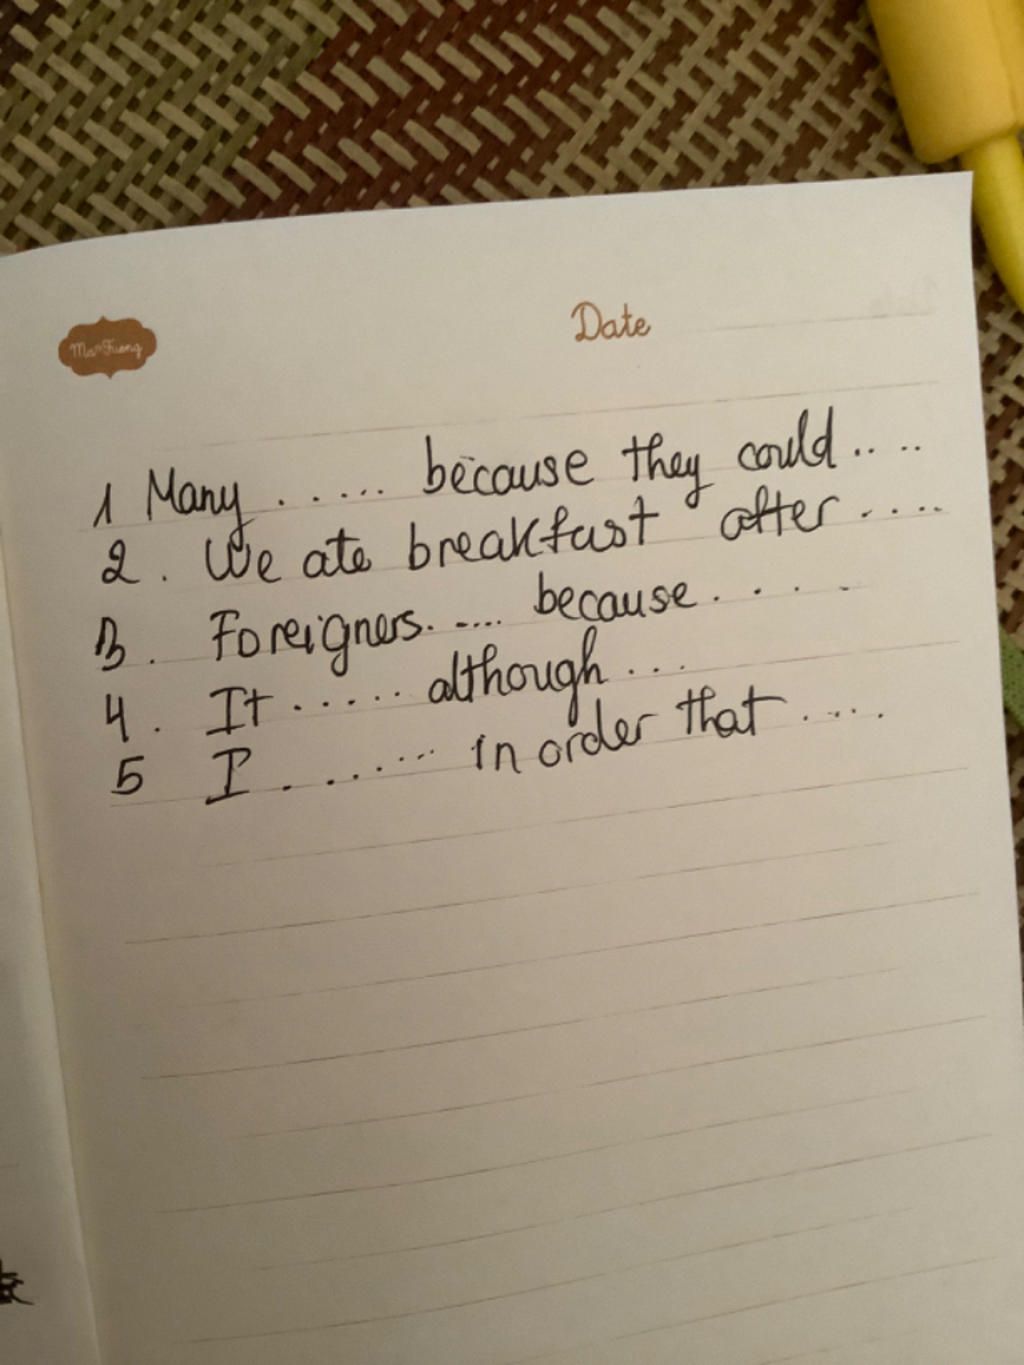 Date
1 Many ..... because they could ....
2. We ate breakfast after ....
3. Foreigners ..... because . . . .
4. It ..... although ...
5 I ....... in order that ....